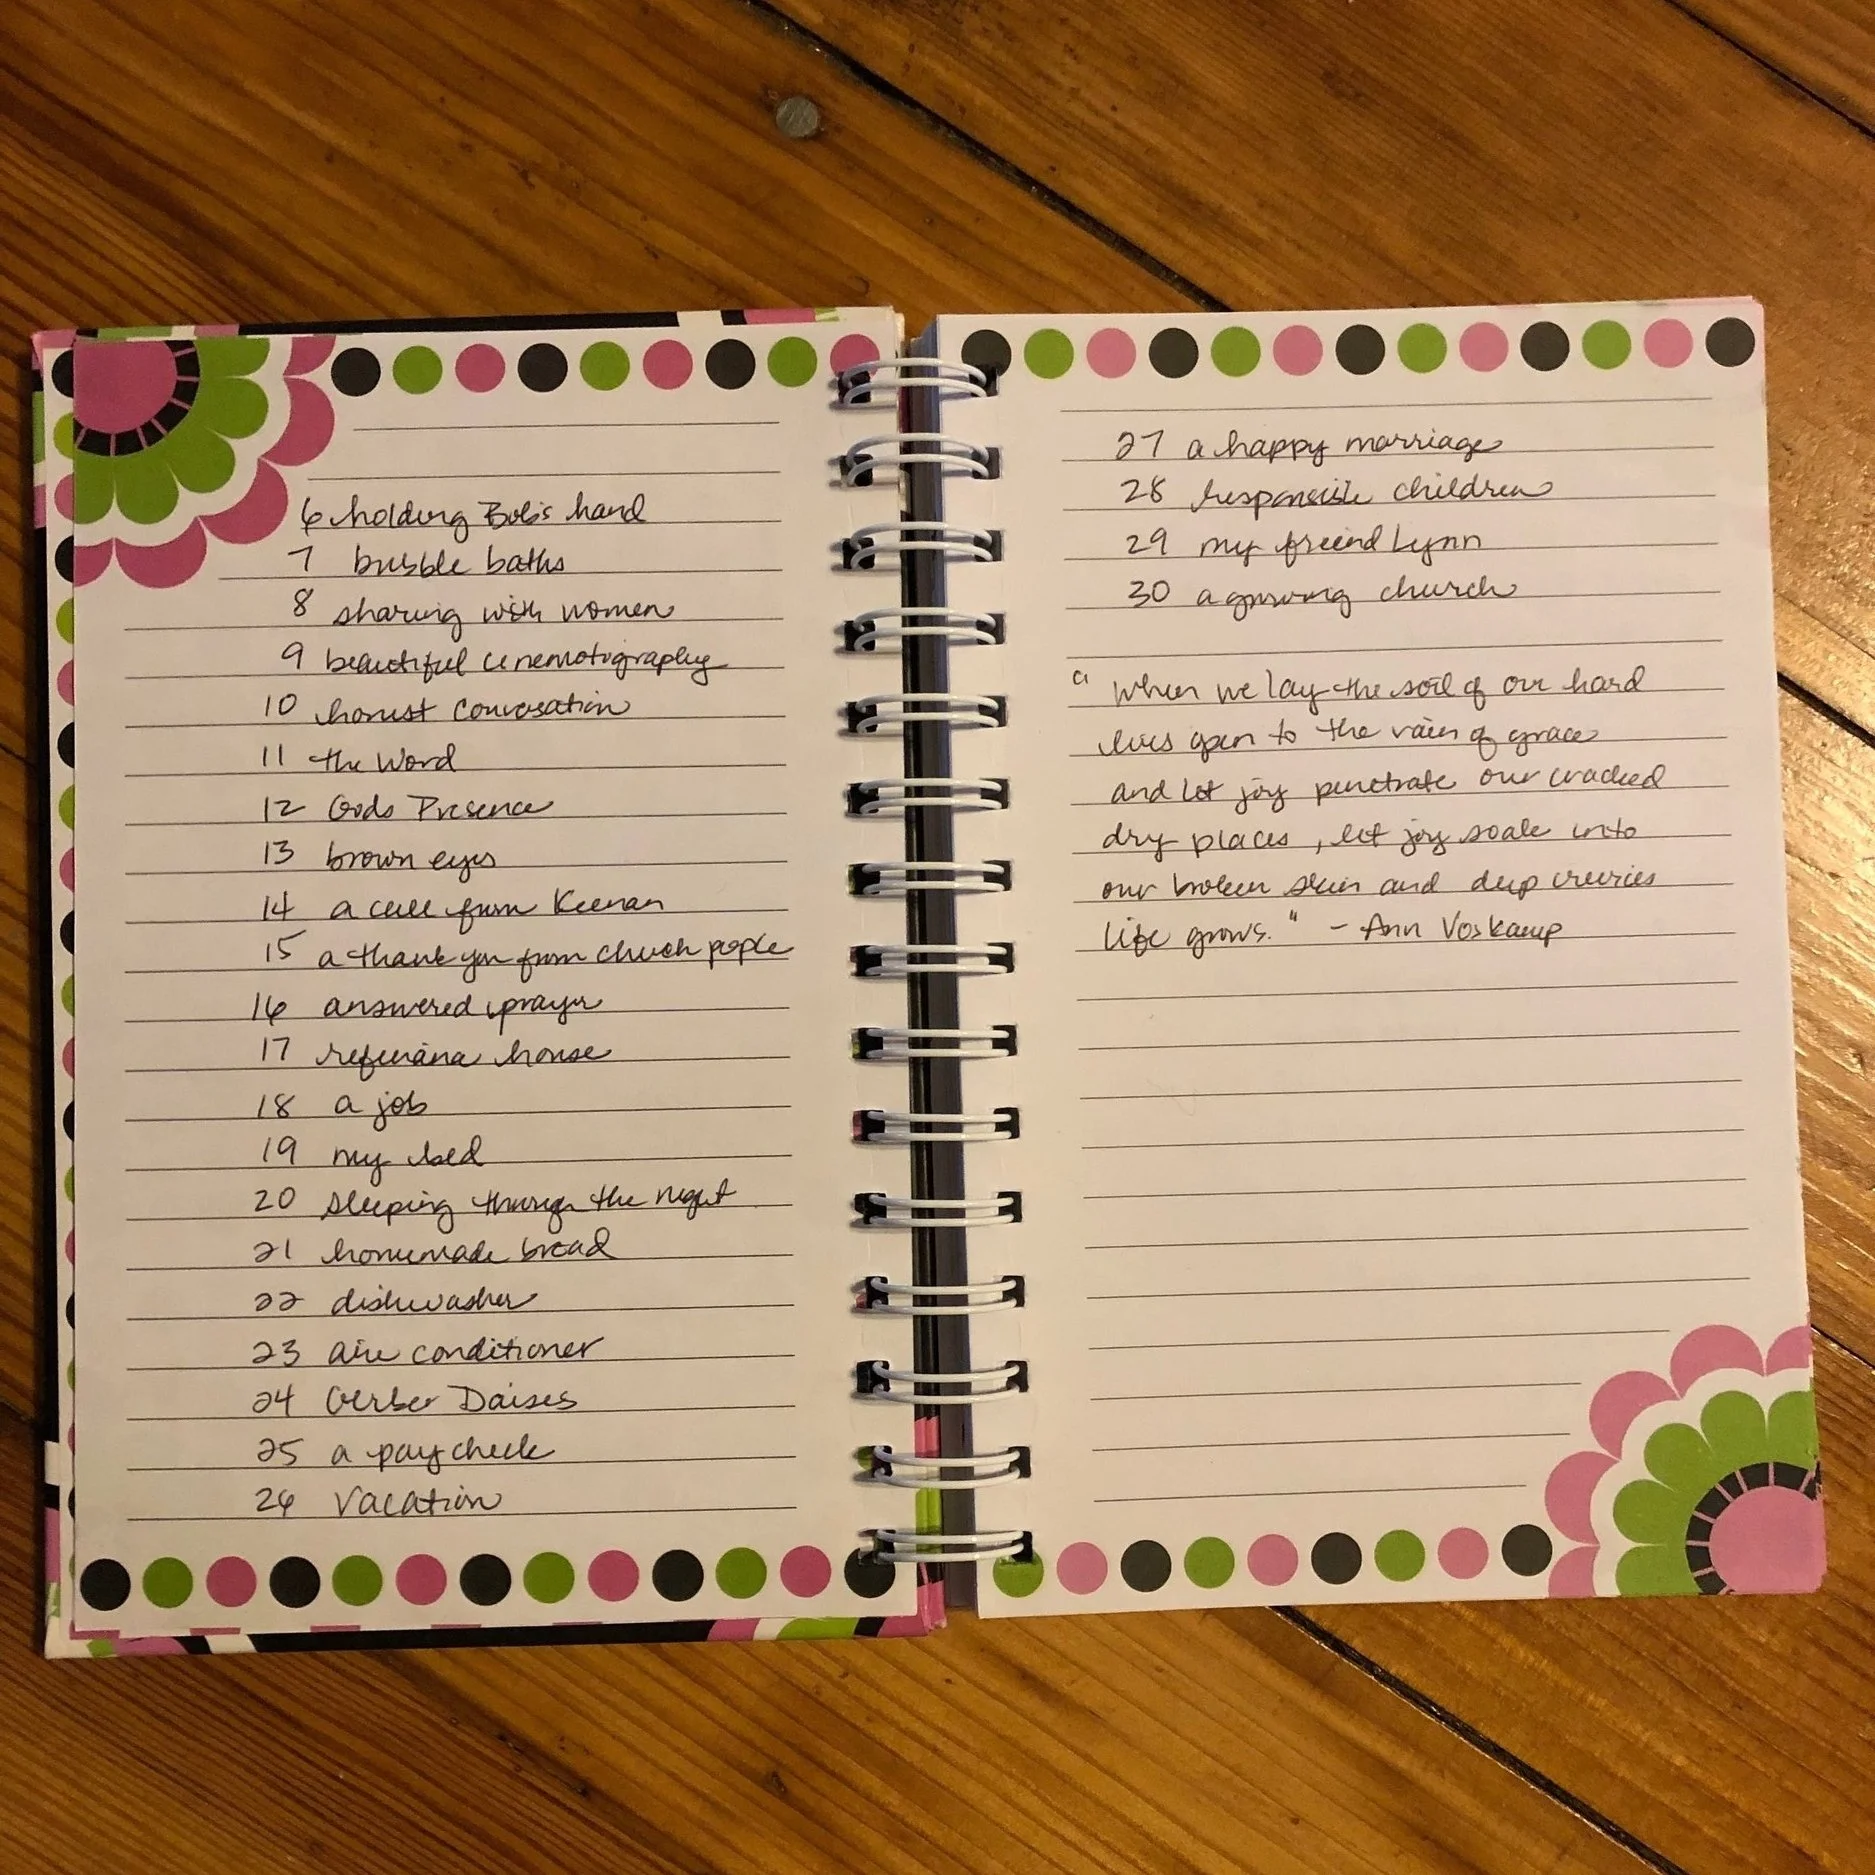 6 holding Bob's hand
7 bubble baths
8 sharing with women
9 beautiful cinemotography
10 honest conversation
11 the Word
12 Gods Presence
13 brown eyes
14 a call from Keenan
15 a thank you from church people
16 answered prayer
17 house
18 a job
19 my bed
20 sleeping through the night
21 homemade bread
22 dishwasher
23 air conditioner
24 Gerber Daises
25 a pay check
26 vacation
27 a happy marriage
28 responsible children
29 my friend Lynn
30 a growing church
"When we lay the soil of our hard
lives open to the rain of grace
and let joy penetrate our cracked
dry places, let joy soak into
our broken skin and deep crevices
life grows." - Ann Voskamp